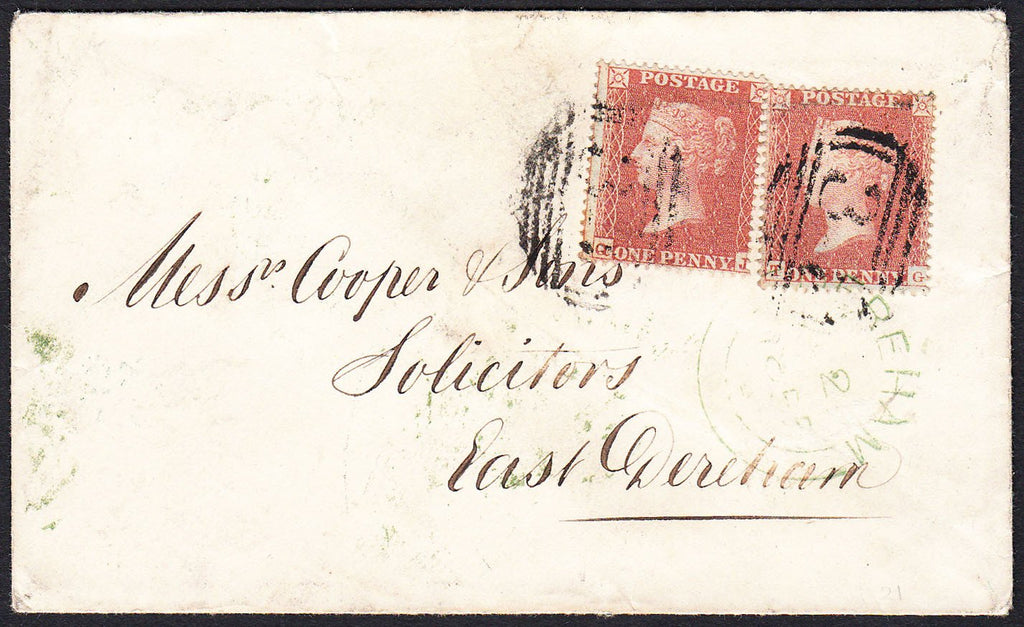 POSTAGE
ONE PENNY J
POSTAGE
ONE PENNY G
Mess.rs Cooper & Sons
Solicitors
East Dereham
DEREHAM
2
21